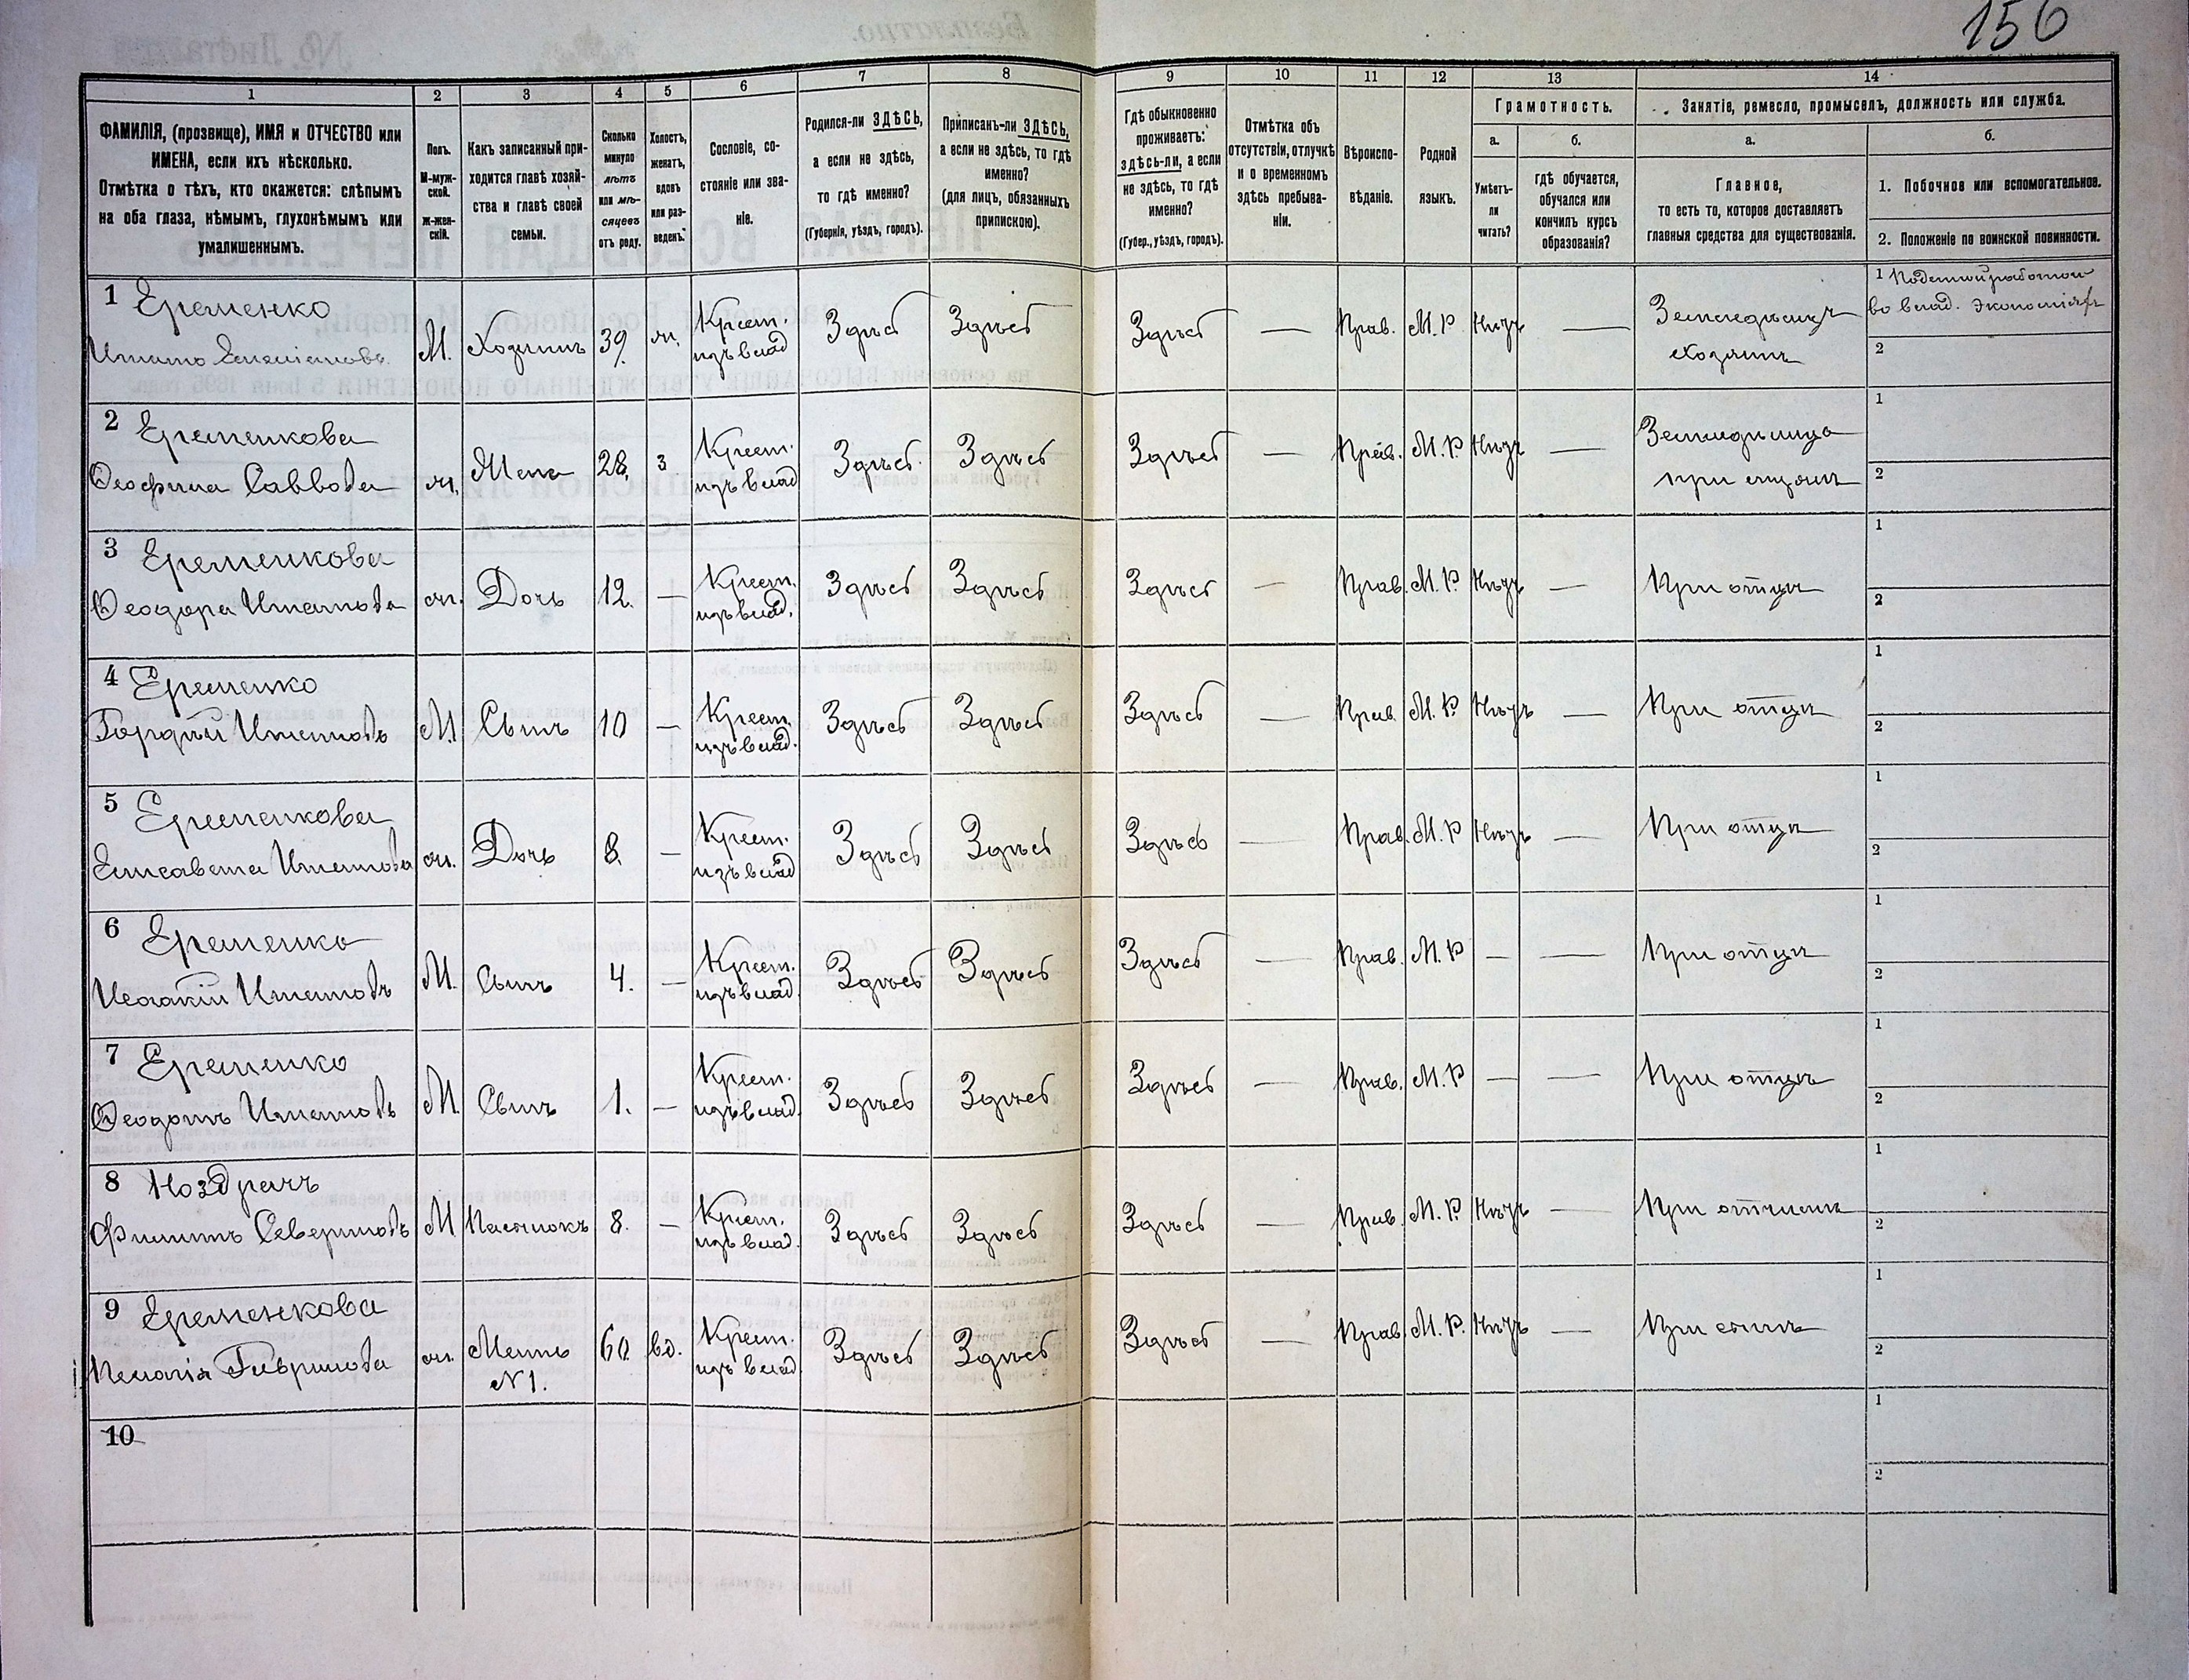 156
1 2 3 4 5 6 7 8 9 10 11 12 13 14
ФАМИЛІЯ, (прозвище), ИМЯ и ОТЧЕСТВО или
ИМЕНА, если ихъ нѣсколько.
Отмѣтка о тѣхъ, кто окажется: слѣпымъ
на оба глаза, нѣмымъ, глухонѣмымъ или
умалишеннымъ.
Полъ.
М-муж-
ской.
Ж-жен-
скій.
Какъ записанный при-
ходится главѣ хозяй-
ства и главѣ своей
семьи.
Сколько
минуло
лѣтъ
или мѣ-
сяцевъ
отъ роду.
Холостъ,
женатъ,
вдовъ
или раз-
веденъ.
Сословіе, со-
стояніе или зва-
ніе.
Родился-ли ЗДѢСЬ,
а если не здѣсь,
то гдѣ именно?
(Губернія, уѣздъ, городъ).
Приписанъ-ли ЗДѢСЬ,
а если не здѣсь, то гдѣ
именно?
(для лицъ, обязанныхъ
припискою).
Гдѣ обыкновенно
проживаетъ:
здѣсь-ли, а если
не здѣсь, то гдѣ
именно?
(Губер., уѣздъ, городъ).
Отмѣтка объ
отсутствіи, отлучкѣ
и о временномъ
здѣсь пребыва-
ніи.
Вѣроиспо-
вѣданіе.
Родной
языкъ.
Грамотность.
а.
Умѣетъ-
ли
читать?
б.
гдѣ обучается,
обучался или
кончилъ курсъ
образованія?
Занятіе, ремесло, промыселъ, должность или служба.
а.
Главное,
то есть то, которое доставляетъ
главныя средства для существованія.
б.
1. Побочное или вспомогательное.
2. Положеніе по воинской повинности.
1 Еременко
М. Хозяинъ 39. ж. Крест. изъ влад. Здѣсь Здѣсь Здѣсь — Прав. М. Р Нѣтъ — Земледѣлецъ
хозяинъ
1 Поденный работникъ
во влад. экономіяхъ
2
2 Еременкова
Ѳеофила Саввова ж. Жена 28. з Крест. изъ влад Здѣсь Здѣсь Здѣсь — Прав. М. Р. Нѣтъ — Земледѣлица
при мужѣ
1
2
3 Еременкова
Ѳеодора Игнатова ж. Дочь 12. — Крест. изъ влад. Здѣсь Здѣсь Здѣсь — Прав. М. Р Нѣтъ — При отцѣ
1
2
4 Еременко
Гордѣй Игнатовъ М. Сынъ 10 — Крест. изъ влад. Здѣсь Здѣсь Здѣсь — Прав. М. Р. Нѣтъ — При отцѣ
1
2
5 Еременкова
Елисавета Игнатова ж. Дочь 8. — Крест. изъ влад Здѣсь Здѣсь Здѣсь — Прав. М. Р Нѣтъ — При отцѣ
1
2
6 Еременко
Игнатовъ М. Сынъ 4. — Крест. изъ влад. Здѣсь Здѣсь Здѣсь — Прав. М. Р — — При отцѣ
1
2
7 Еременко
Ѳеодотъ Игнатовъ М. Сынъ 1. — Крест. изъ влад. Здѣсь Здѣсь Здѣсь — Прав. М. Р — — При отцѣ
1
2
8 Ноздрачъ
Филиппъ Севериновъ М Пасынокъ 8. — Крест. изъ влад. Здѣсь Здѣсь Здѣсь — Прав. М. Р. Нѣтъ — При отчимѣ
1
2
9 Еременкова
Пелагія Гаврилова ж. Мать
N 1. 60 вд. Крест. изъ влад Здѣсь Здѣсь Здѣсь — Прав. М. Р. Нѣтъ — При сынѣ
1
2
10
1
2